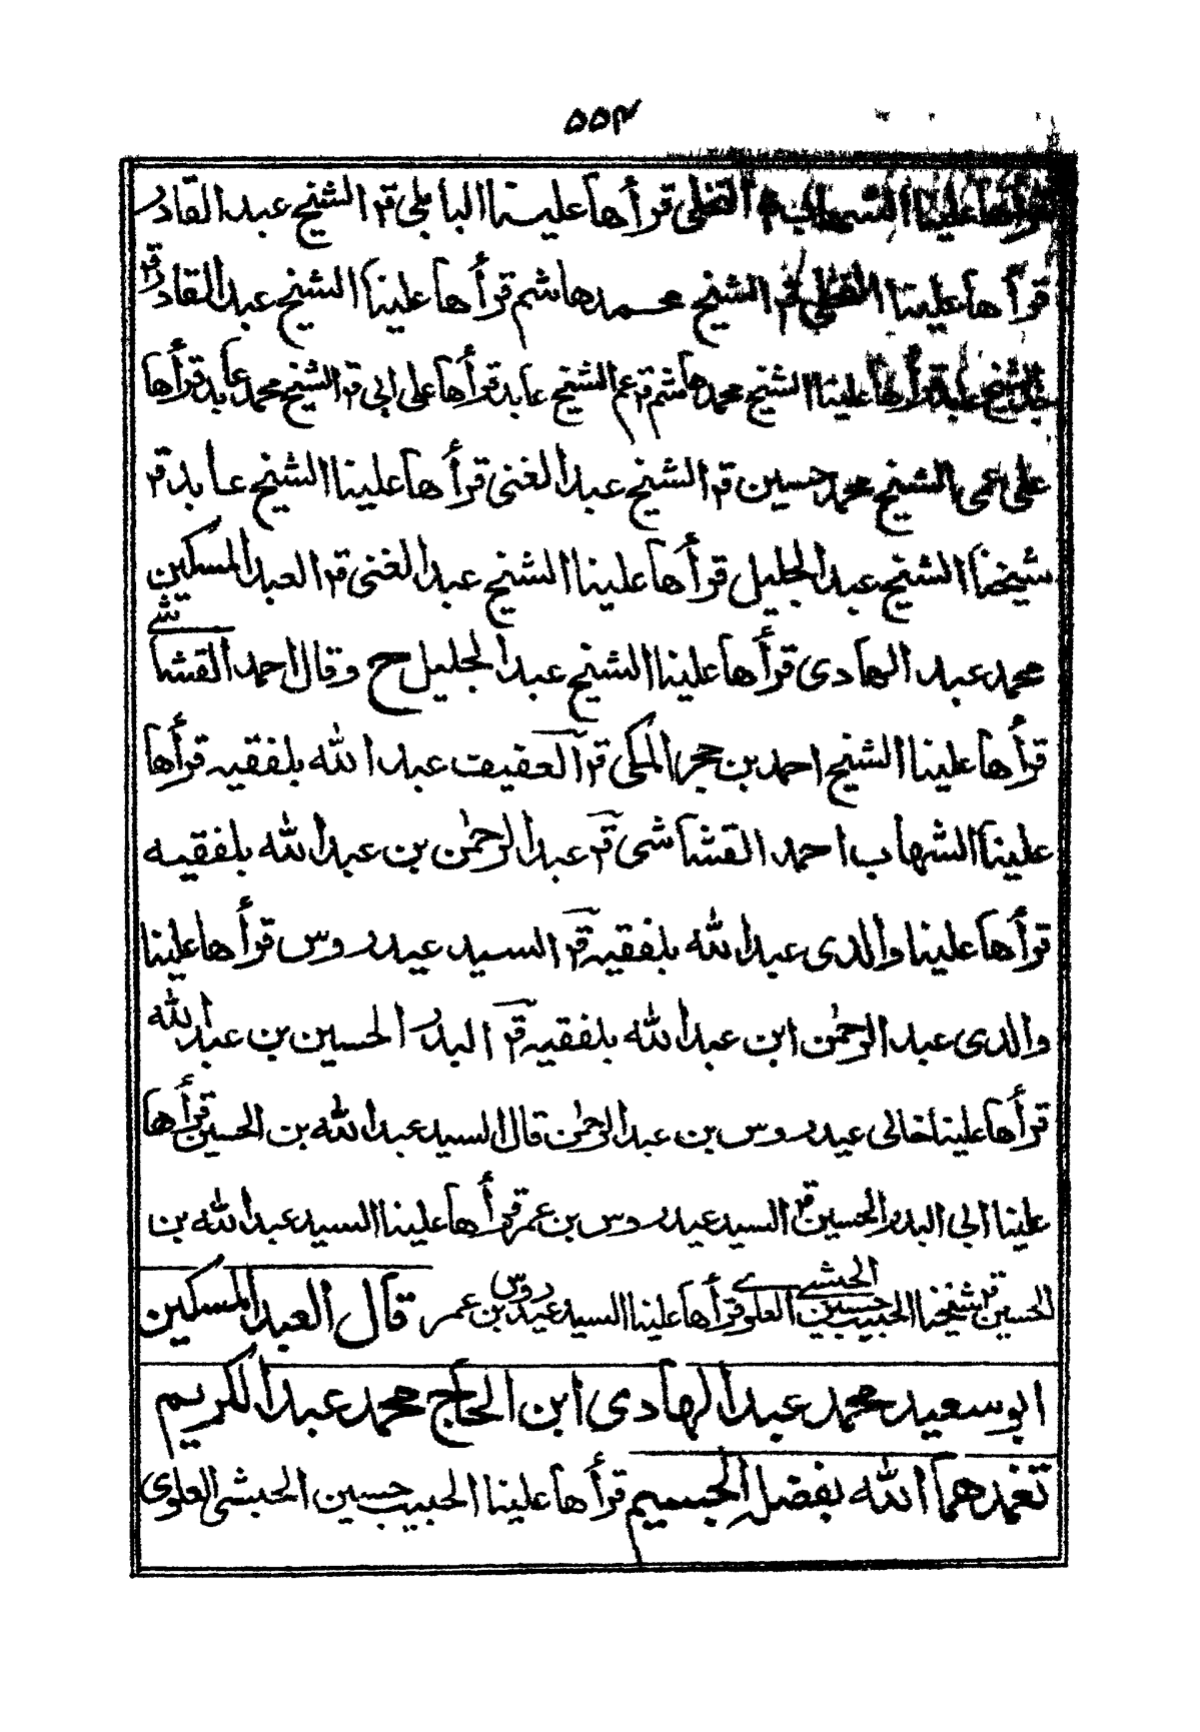 ٥٥٣
قرأها علينا الشهاب النخلي قرأها علينا البابلي قم الشيخ عبد القادر
قرأها علينا النخلي قم الشيخ محمد هاشم قرأها علينا الشيخ عبد القادر قم
الشيخ عابد قرأها علينا الشيخ محمد هاشم قم عم الشيخ عابد قرأها على ابي قم الشيخ محمد عابد قرأها
على عمى الشيخ محمد حسين قم الشيخ عبد الغنى قرأها علينا الشيخ عابد قم
شيخنا الشيخ عبد الجليل قرأها علينا الشيخ عبد الغنى قم العبد المسكين
محمد عبد الهادى قرأها علينا الشيخ عبد الجليل ح وقال احمد القشاشى
قرأها علينا الشيخ احمد بن حجر المكى قم العفيف عبد الله بلفقيه قرأها
علينا الشهاب احمد القشاشى قم عبد الرحمن بن عبد الله بلفقيه
قرأها علينا والدى عبد الله بلفقيه قم السيد عيدروس قرأها علينا
والدى عبد الرحمن ابن عبد الله بلفقيه قم البدر الحسين بن عبد الله
قرأها علينا خالى عيدروس بن عبد الرحمن قال السيد عبد الله بن الحسين قرأها
علينا ابي البدر الحسين قم السيد عيدروس بن عمر قرأها علينا السيد عبد الله بن
الحسين قم شيخنا الحبيب حسين الحبشى العلوى قرأها علينا السيد عيدروس بن عمر قال العبد المسكين
ابو سعيد محمد عبد الهادى ابن الحاج محمد عبد الكريم
تغمدهما الله بفضله الجسيم قرأها علينا الحبيب حسين الحبشى العلوى